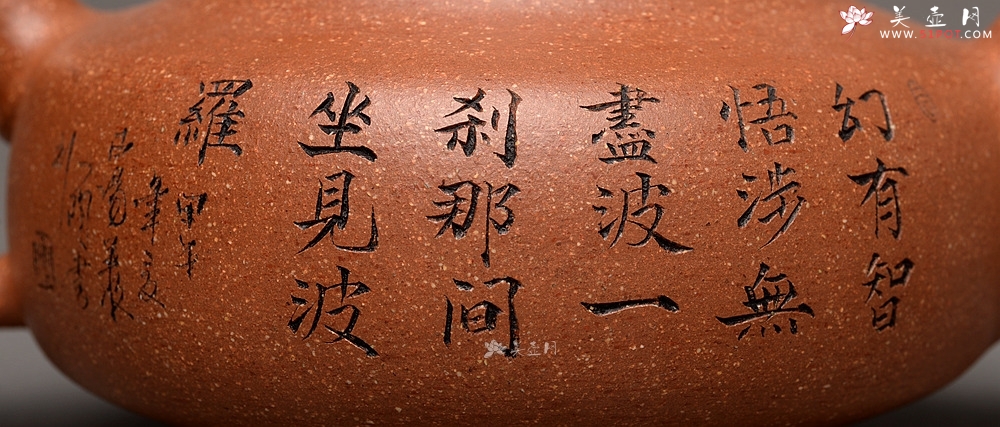 幻有智
悟涉無
盡波一
刹那间
坐見波
羅
甲午
年夏
美壶网
WWW.
.COM
美壶网